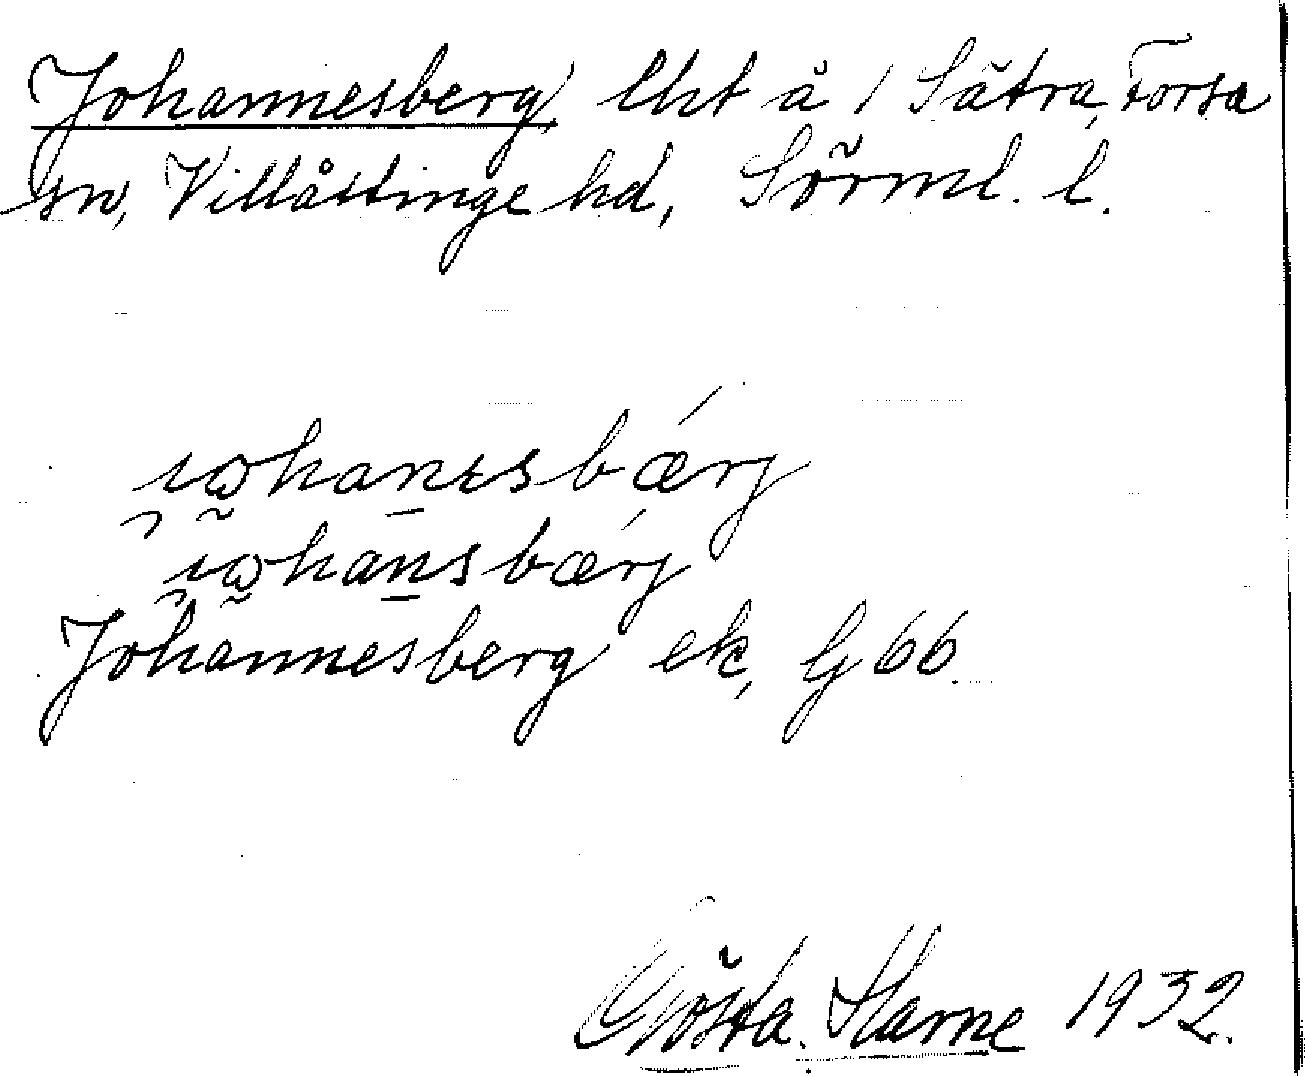 Johannesberg, lht å / Sätra, Forssa
sn, Villåttinge hd, Sörml. l.
johanɛsbǽrj
johansbǽrj
Johannesberg ek, G 66.
Gösta Harne 1932.